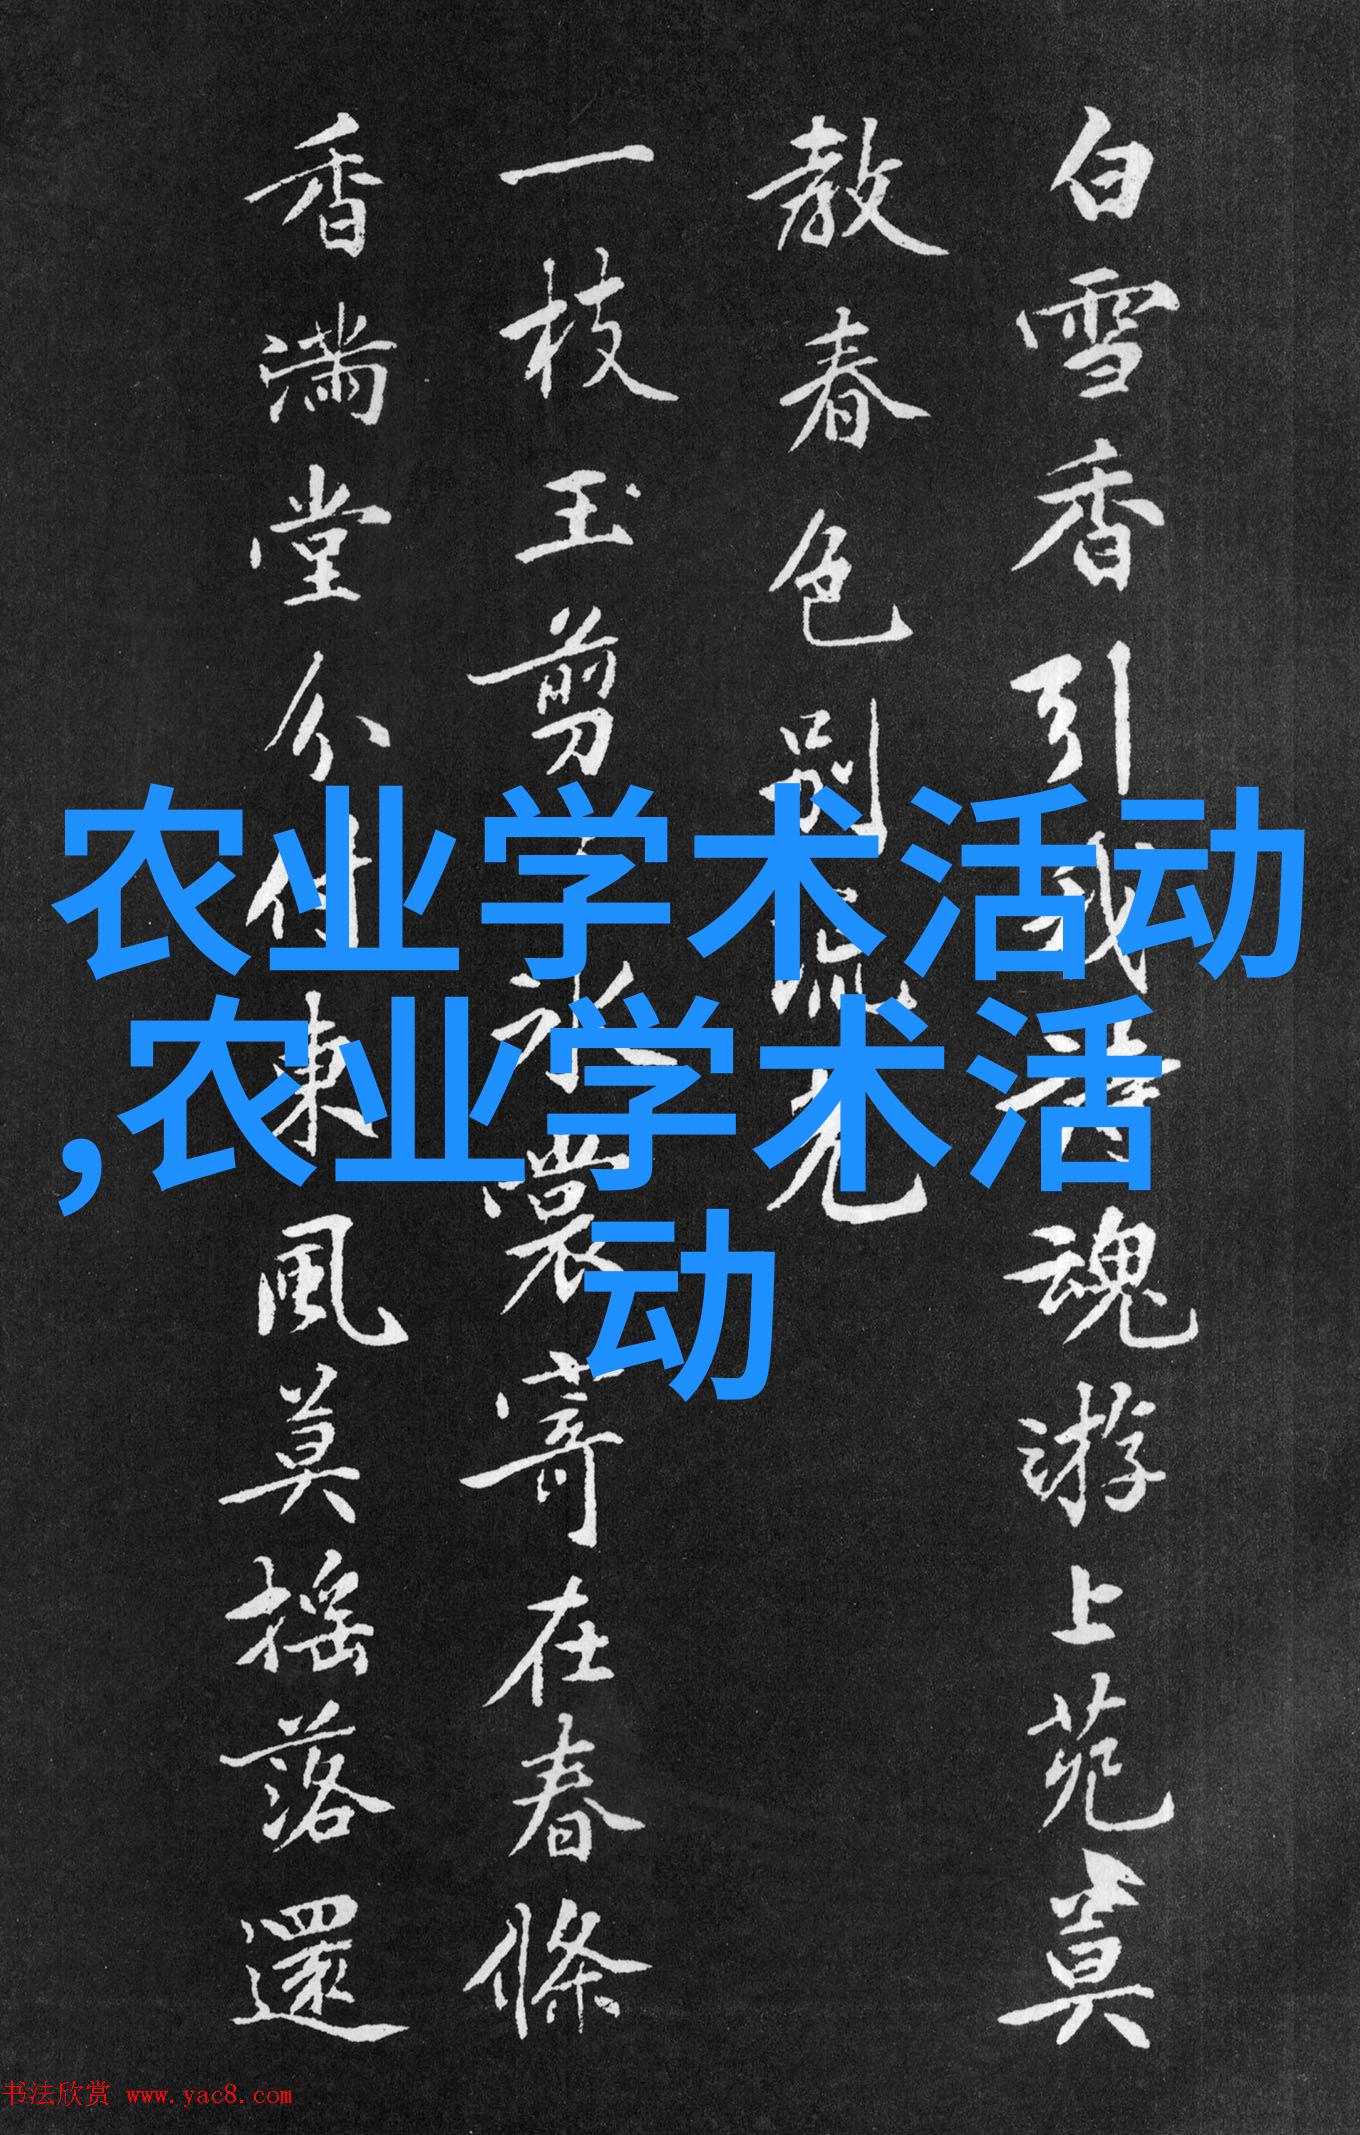 白雪香引我清魂游上苑莫
教春色别流光
一枝玉剪
永農寄在春條
香满堂分付東風莫摇落還
农业学术活动
,农业学术活
动
书法欣赏 www.yac8.com